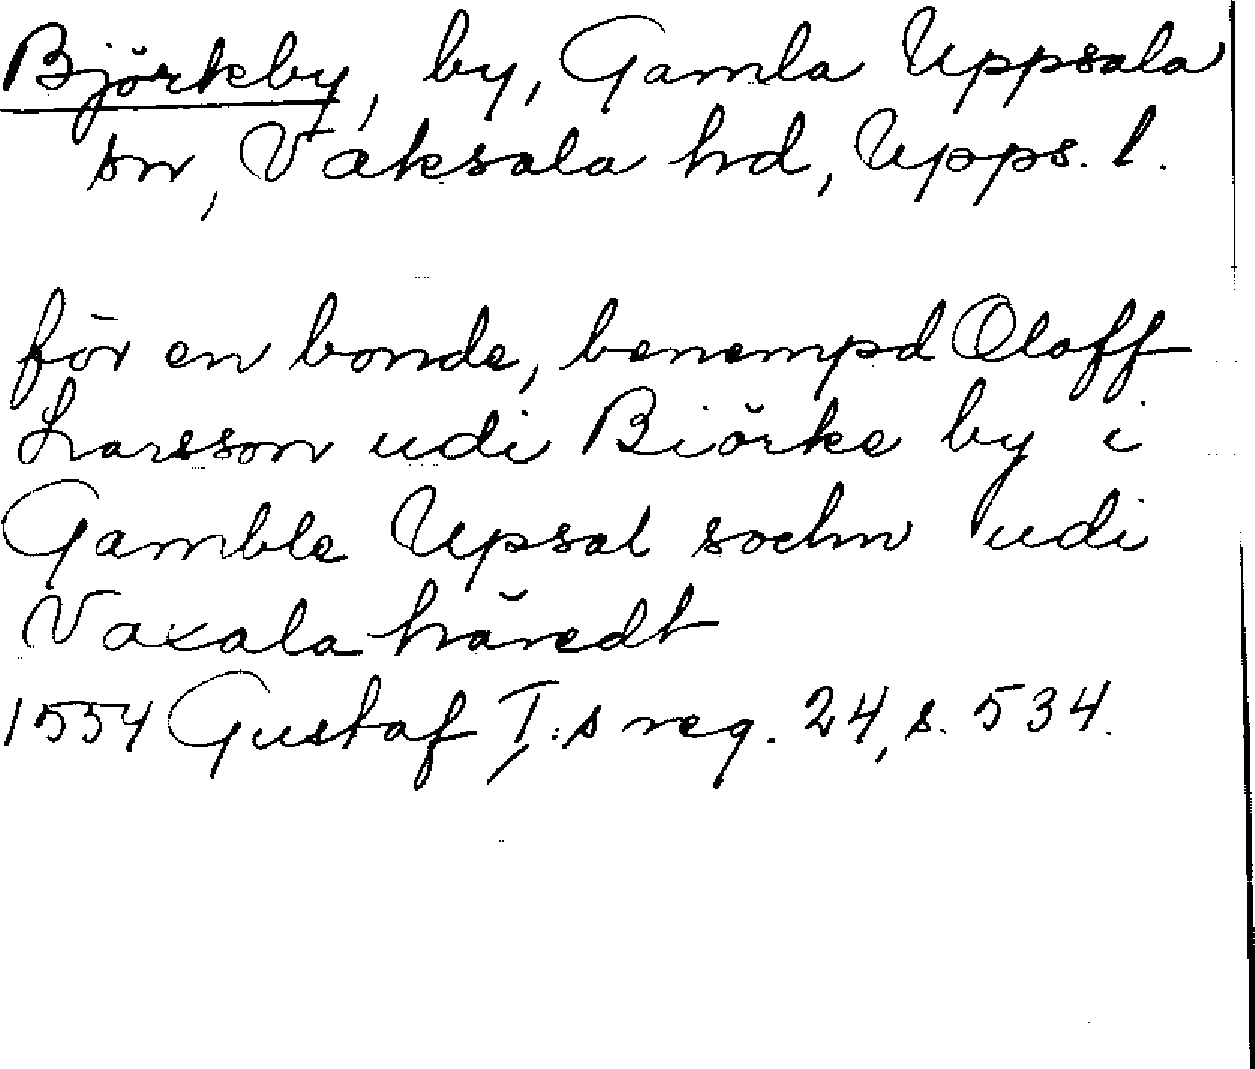 Björkeby, by, Gamla Uppsala
sn, Vaksala hd, Upps. l.
för en bonde, benempd Oloff
Larsson udi Biörke by i
Gamble Upsal sochn udi
Vaxala häredt
1554 Gustaf I:s reg. 24, s. 534.